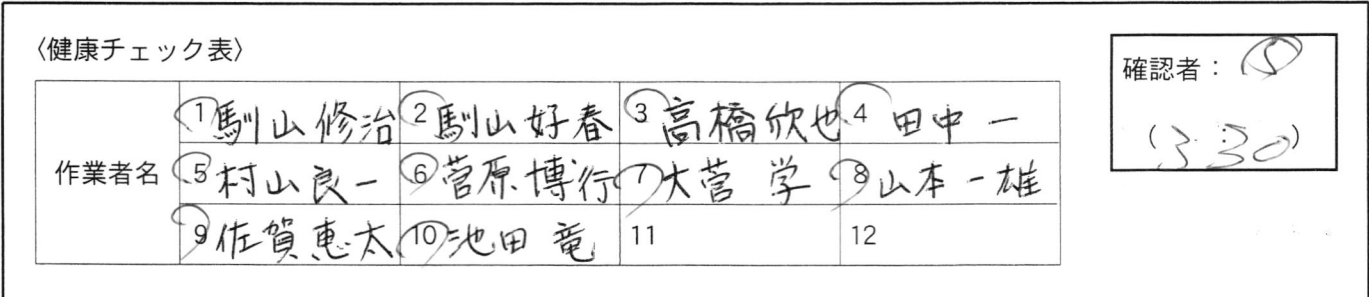 〈健康チェック表〉
確認者：
作業者名
1 馴山修治 2 馴山好春 3 高橋欣也 4 田中一
5 村山良一 6 菅原博行 7 大菅 学 8 山本一雄
9 佐賀恵太 10 池田 竜 11 12
(3:30)